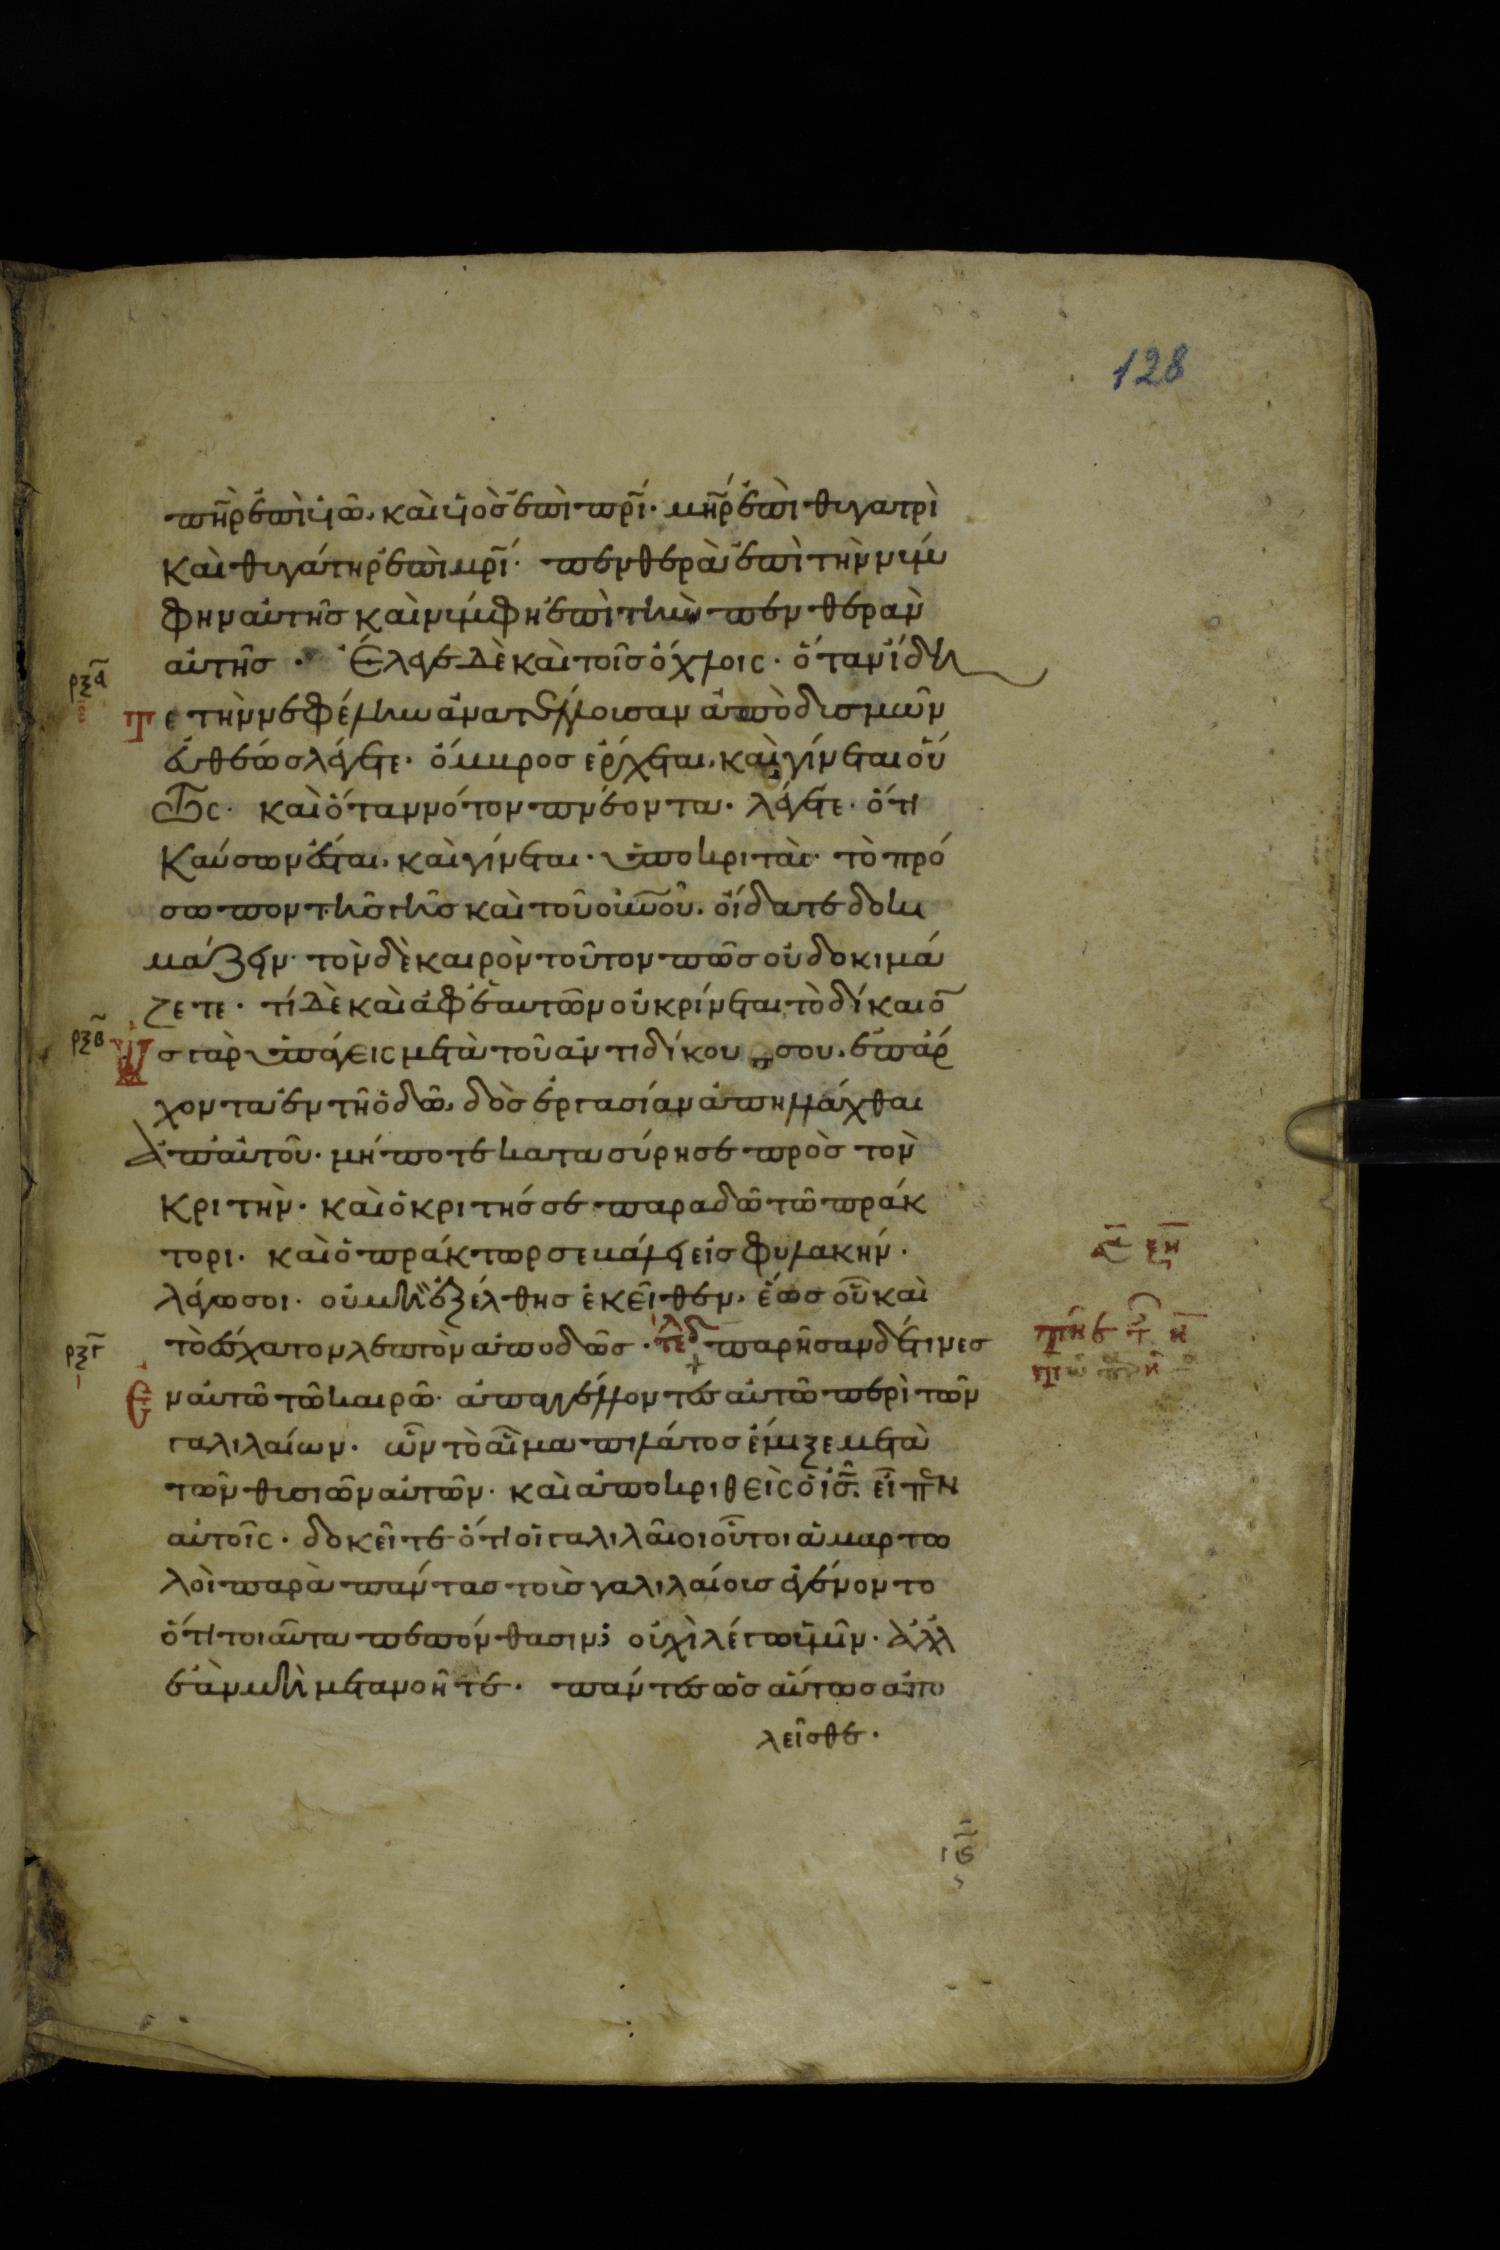 128
πη̅ρ ἐπὶ υἱῶ, καὶ υἱὸσ ἐπὶ πρ̅ί· μη̅ρ ἐπὶ θυγατρὶ
καὶ θυγάτηρ ἐπὶ μρ̅ί· πενθερὰ ἐπὶ τὴν νύμ
φην αὐτῆσ καὶ νύμφη ἐπὶ τὴν πενθερὰν
αὐτῆσ · Ἔλεγε δὲ καὶ τοῖσ ὄχλοις · ὅταν ἴδη
ρξα̅
τε τὴν νεφέλην ἀνατέλλουσαν ἀπὸ δυσμῶν
εὐθέωσ λέγετε · ὄμβροσ ἔρχεται, καὶ γίνεται οὕ
τως · καὶ ὅταν νότον πνέοντα · λέγετε · ὅτι
καύσων ἔσται, καὶ γίνεται · ὑποκριταὶ · τὸ πρό
σωπον τῆσ γῆσ καὶ τοῦ οὐν̅οῦ. οἴδατε δοκι
μάζειν · τὸν δὲ καιρὸν τοῦτον πῶσ οὐ δοκιμά
ζετε · τί δὲ καὶ ἀφ' ἑαυτῶν οὐ κρίνεται τὸ δίκαιο̅
ρξβ̅
ὡσ γὰρ ὑπάγεις μετὰ τοῦ ἀντιδίκου σου, ἐπ' ἄρ
χοντα ἐν τῆ ὁδῶ, δὸσ ἐργασίαν ἀπηλλάχθαι
ἀπ' αὐτοῦ · μήποτε κατασύρησε πρὸσ τὸν
κριτὴν · καὶ ὁ κριτήσ σε παραδῶ τῶ πράκ
τορι · καὶ ὁ πράκτωρ σε βάλει εἰσ φυλακήν ·
λέγω σοι · οὐ μὴ ἐξέλθησ ἐκεῖθεν, ἕωσ οὗ καὶ
τὸ ἔσχατον λεπτὸν ἀποδῶσ · τε παρῆσαν δέ τινεσ
ρξγ̅
ἐν αὐτῶ τῶ καιρῶ · ἀπαγγέλλοντεσ αὐτῶ περὶ τῶν
γαλιλαίων · ὧν τὸ αἷμα πιλάτοσ ἔμιξε μετὰ
τῶν θυσιῶν αὐτῶν · καὶ ἀποκριθεὶς ὁ ἰσ̅. εἶπεν
αὐτοῖς · δοκεῖτε ὅτι οἱ γαλιλαῖοι οὗτοι ἁμαρτω
λοὶ παρὰ πάντασ τοὺσ γαλιλαίουσ ἐγένοντο
ὅτι τοιαῦτα πεπόνθασιν; οὐχὶ λέγω ὑμῖν · ἀλλ'
ἐὰν μὴ μετανοῆτε · πάντεσ ὡσαύτωσ ἀπο
λεῖσθε ·